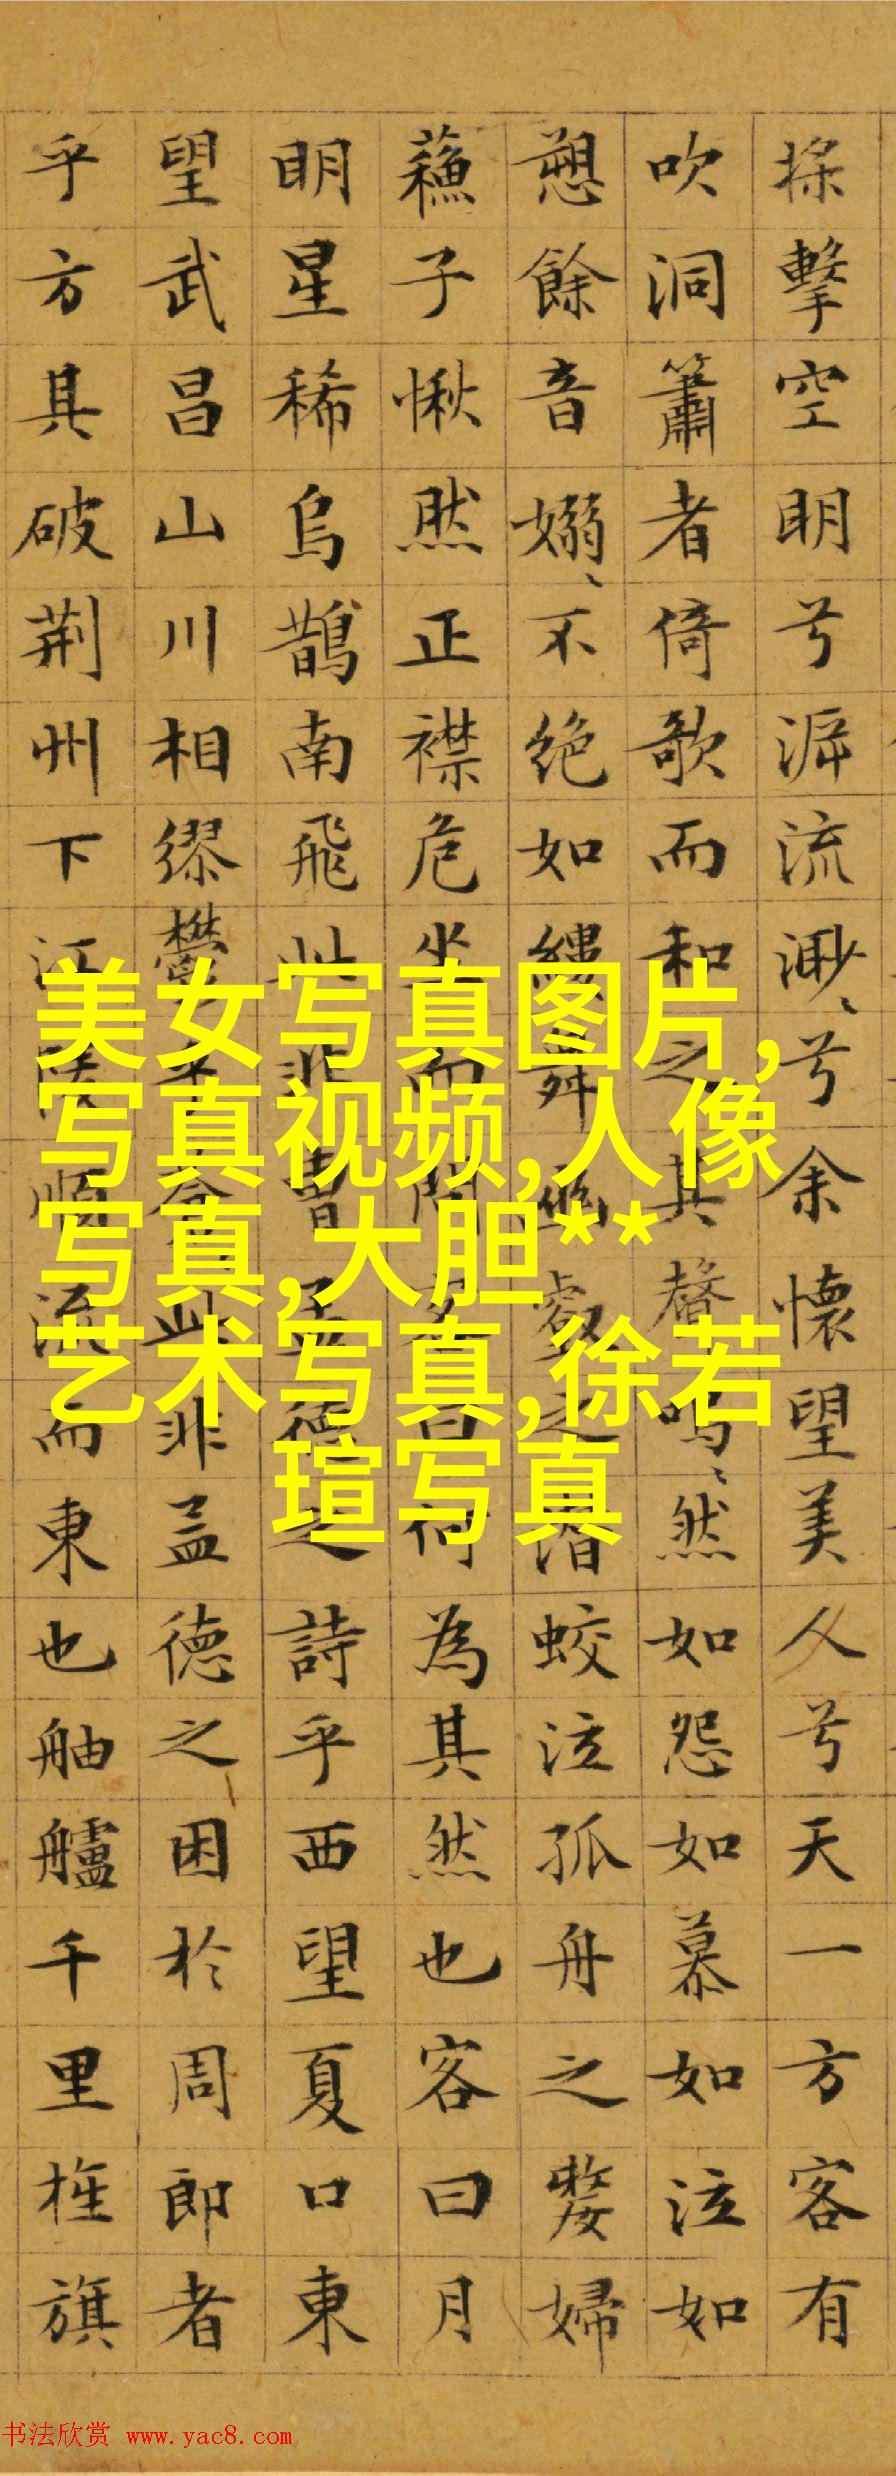 槳擊空明兮泝流渺〻兮余懷望美人兮天一方客有
吹洞簫者倚歌而和之其聲嗚〻然如怨如慕如泣如
愬餘音嫋〻不絶如縷舞幽壑之潛蛟泣孤舟之嫠婦
蘓子愀然正襟危坐而問客曰何為其然也客曰月
明星稀烏鵲南飛此非曹孟德之詩乎西望夏口東
望武昌山川相繆鬱乎蒼此非孟德之困於周郎者
乎方其破荊州下江陵順流而東也舳艫千里旌旗
美女写真图片,
写真视频,人像
写真,大胆**
艺术写真,徐若
瑄写真
书法欣赏 www.yac8.com